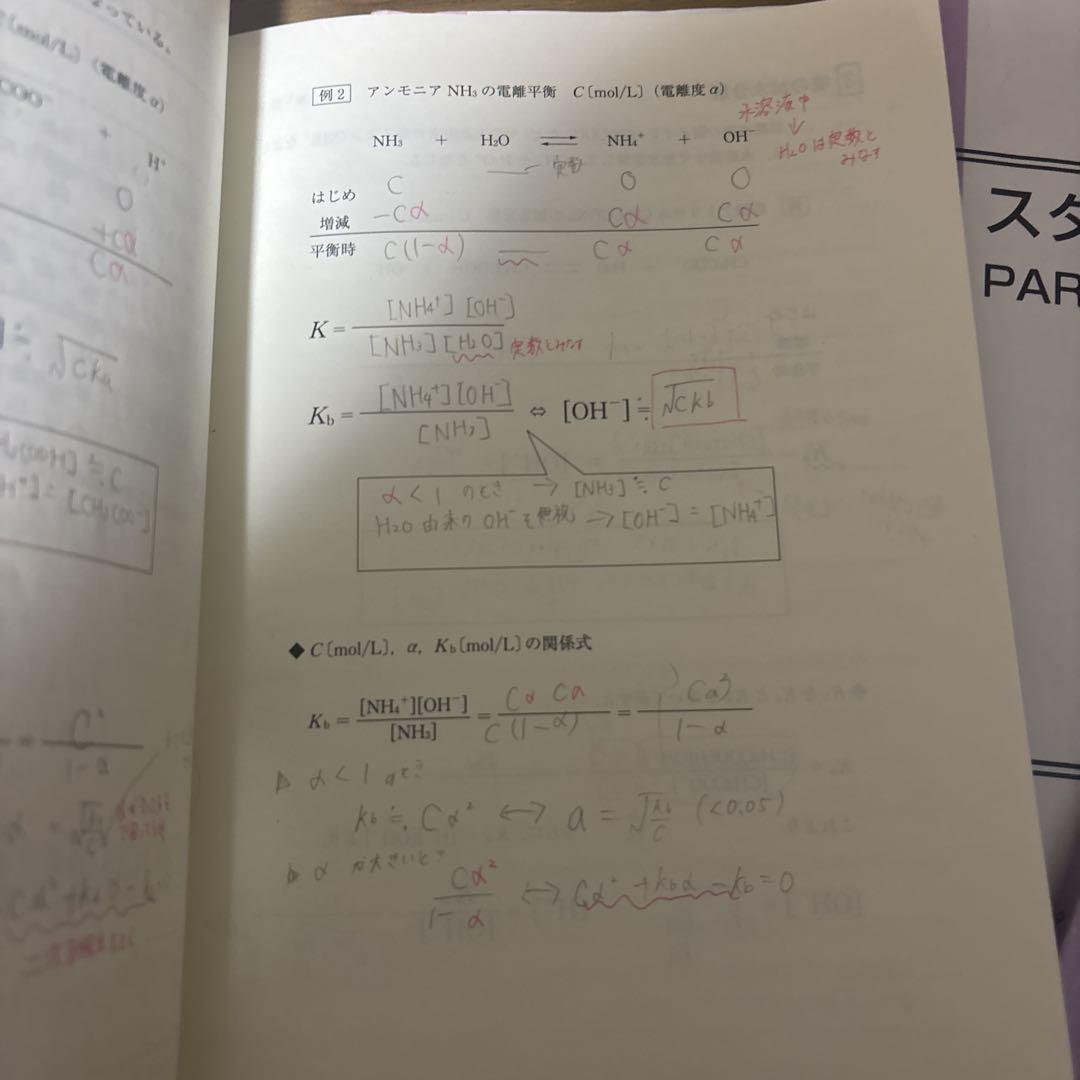 っている。
〔mol/L〕(電離度α)
COO⁻
+
H⁺
0
+Cα
Cα
≒ √CKa
COOH] ≒ C
H⁺] = [CH₃COO⁻]
1-α
α = √
例2 アンモニア NH₃ の電離平衡 C〔mol/L〕(電離度 α)
水溶液中
↓
H₂Oは定数と
みなす
NH₃ + H₂O ⇄ NH₄⁺ + OH⁻
定数
はじめ C 0 0
増減 -Cα Cα Cα
平衡時 C(1-α) Cα Cα
K = [NH₄⁺][OH⁻] / [NH₃][H₂O] 定数とみなす
Kb = [NH₄⁺][OH⁻] / [NH₃] ⇔ [OH⁻] ≒ √CKb
α < 1 のとき → [NH₃] ≒ C
H₂O由来のOH⁻を無視 → [OH⁻] = [NH₄⁺]
◆ C〔mol/L〕, α, Kb〔mol/L〕の関係式
Kb = [NH₄⁺][OH⁻] / [NH₃] = Cα Cα / C(1-α) = Cα² / 1-α
▷ α < 1 のとき
Kb ≒ Cα² ⟷ α = √Kb/C (<0.05)
▷ α が大きいとき
Cα² / 1-α ⟷ Cα² + Kbα - Kb = 0
スタ
PAR